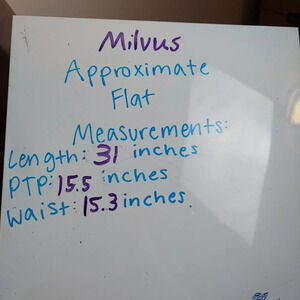 Milvus
Approximate
Flat
Measurements:
Length: 31 inches
PTP: 15.5 inches
Waist: 15.3 inches